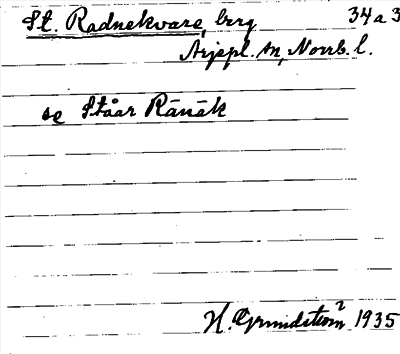 St. Radnekvare, berg 34 a 3
Arjepl. sn, Norrb. l.
se Ståar Ränäk
H. Grundström 1935